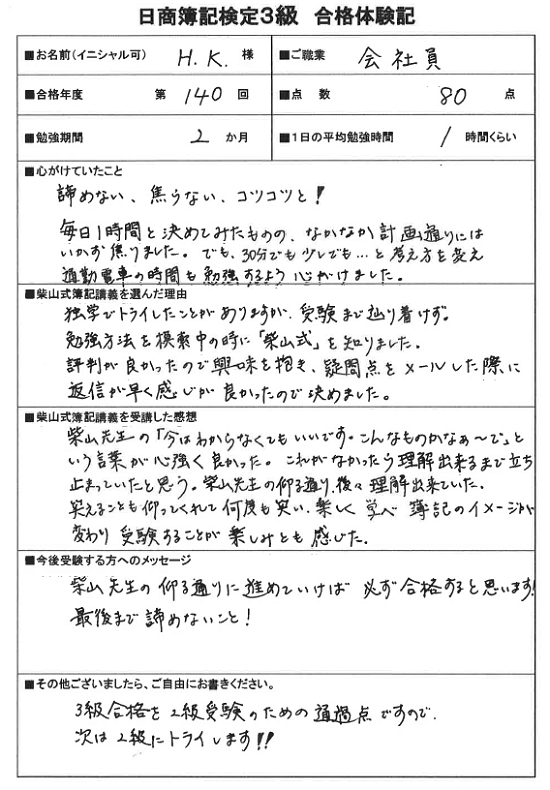 日商簿記検定3級 合格体験記
■お名前(イニシャル可) H.K. 様 ■ご職業 会社員
■合格年度 第 140 回 ■点 数 80 点
■勉強期間 2 か月 ■1日の平均勉強時間 1 時間くらい
■心がけていたこと
諦めない、焦らない、コツコツと!
毎日1時間と決めてみたものの、なかなか計画通りには
いかず焦りました。でも、30分でも少しでも…と考え方を変え
通勤電車の時間も勉強するよう心がけました。
■柴山式簿記講義を選んだ理由
独学でトライしたことがありますが、受験まで辿り着けず。
勉強方法を模索中の時に「柴山式」を知りました。
評判が良かったので興味を抱き、疑問点をメールした際に
返信が早く感じが良かったので決めました。
■柴山式簿記講義を受講した感想
柴山先生の「今はわからなくてもいいです。こんなものかなぁ〜で」と
いう言葉が心強く良かった。これがなかったら理解出来るまで立ち
止まっていたと思う。柴山先生の仰る通り、後々理解出来ていた。
笑えることも仰ってくれて何度も笑い、楽しく学べ簿記のイメージが
変わり受験することが楽しみとも感じた。
■今後受験する方へのメッセージ
柴山先生の仰る通りに進めていけば必ず合格すると思います!
最後まで諦めないこと!
■その他ございましたら、ご自由にお書きください。
3級合格を2級受験のための通過点ですので、
次は2級にトライします!!